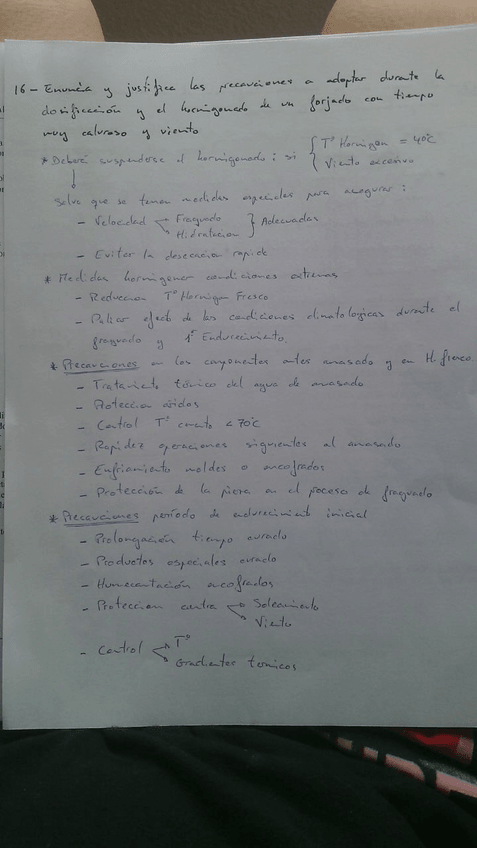 16 - Enuncia y justifica las precauciones a adoptar durante la
dosificación y el hormigonado de un forjado con tiempo
muy caluroso y viento
* Deberá suspenderse el hormigonado : si { Tº Hormigon = 40ºC
Viento excesivo
Salvo que se tomen medidas especiales para asegurar :
- Velocidad Fraguado } Adecuadas
Hidratacion
- Evitar la desecacion rapida
* Medidas hormigonar condiciones extremas
- Reduccion Tº Hormigon Fresco
- Paliar efect de las condiciones climatologicas durante el
fraguado y 1er Endurecimiento.
* Precauciones en los componentes antes amasado y en H. fresco.
- Tratamiento térmico del agua de amasado
- Proteccion áridos
- Control Tº cemento < 70ºC
- Rapidez operaciones siguientes al amasado
- Enfriamiento moldes o encofrados
- Protección de la pieza en el proceso de fraguado
* Precauciones período de endurecimient inicial
- Prolongación tiempo curado
- Productos especiales curado
- Humectación encofrados
- Proteccion contra Soleamiento
Viento
- Control Tº
Gradientes termicos